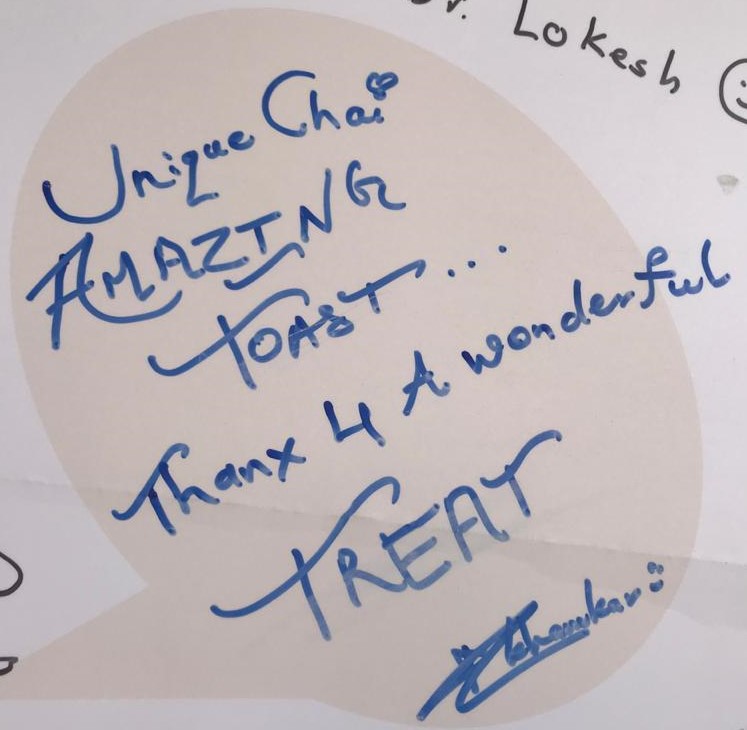 Dr. Lokesh
Unique Chai
AMAZING
TOAST...
Thanx 4 A wonderful
TREAT